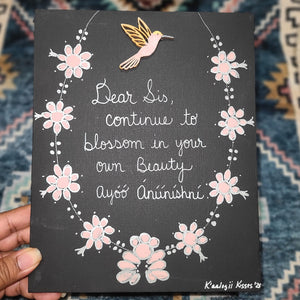 Dear Sis,
continue to
blossom in your
own Beauty
Ayóó Ánííníshní.
K'aalógii Kisses '23